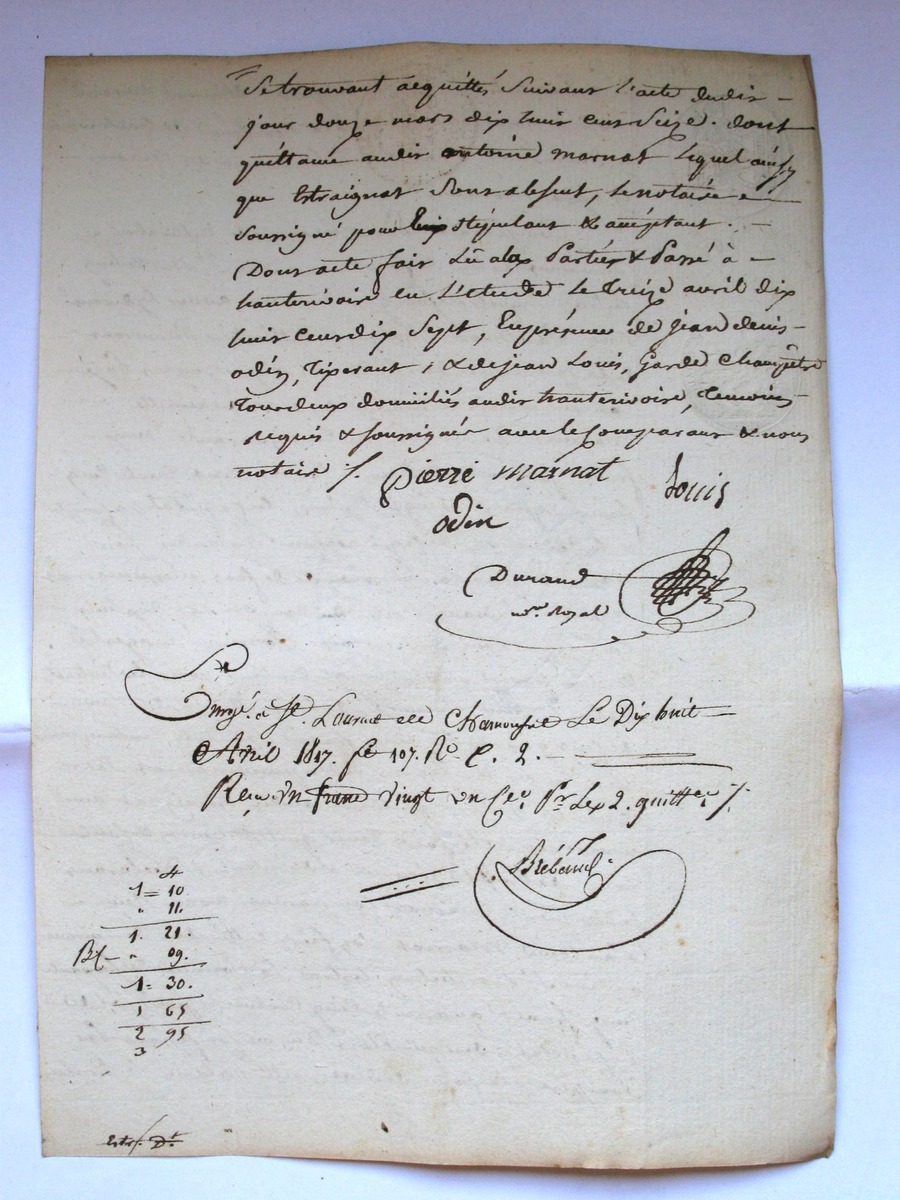 Se trouvant acquittés suivant l'acte dudit
jour douze mars dix huit cent Seize. dont
quittance audit antoine marnat lequel ainsy
que Estraignat Sont absent, le notaire
soussigné pour Eux Stipulant & acceptant.
Dont acte fait Lu aux Parties & Passé à
hauterivoire en L'Etude Le Treize avril dix
huit cent dix Sept, En présence de jean denis
odin, Tiserant, & de jean Louis, Garde Champêtre
Tous deux domiciliés audit hauterivoire, Temoins
Requis & soussignés avec le Comparant & nous
notaire /.
pierre marnat Louis
odin
Durand
nre. Royal
Enregé. à St. Laurent de Chamousset Le Dix huit
Avril 1817. fo 107. Ro C. 2.
Reçu Un franc Vingt un Ces. Pr. Les 2. quittces /.
Brébaud
1= 10
" 11.
1. 21.
" 09.
1= 30.
1 65
2 95
3